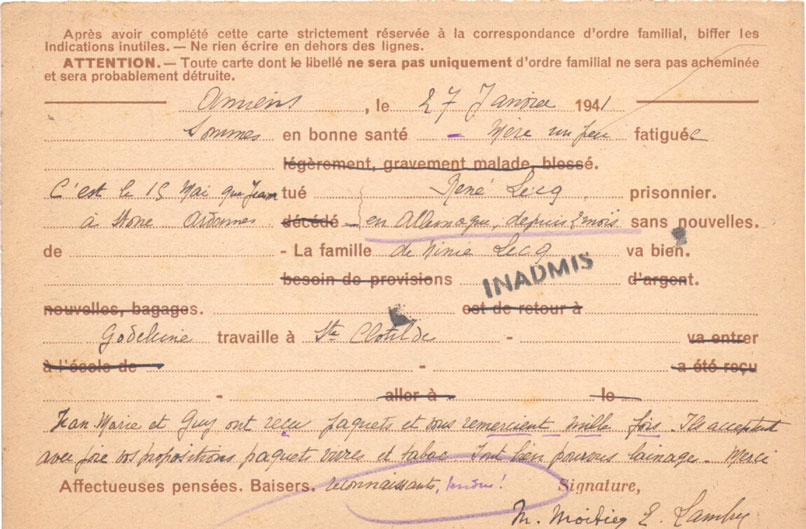 Après avoir complété cette carte strictement réservée à la correspondance d'ordre familial, biffer les
indications inutiles. — Ne rien écrire en dehors des lignes.
ATTENTION. — Toute carte dont le libellé ne sera pas uniquement d'ordre familial ne sera pas acheminée
et sera probablement détruite.
Amiens, le 27 Janvier 1941
Sommes en bonne santé - Mère un peu fatiguée
légèrement, gravement malade, blessé.
C'est le 15 Mai que Jean tué René Lecq prisonnier.
à Stone Ardennes décédé en Allemagne, depuis 2 mois sans nouvelles.
de - La famille de Ninie Lecq va bien.
besoin de provisions INADMIS d'argent.
nouvelles, bagages. est de retour à
Godeleine travaille à Ste Clotilde - va entrer
à l'école de - a été reçu
- aller à le
Jean Marie et Guy ont reçu paquets et vous remercient mille fois. Ils acceptent
avec joie vos propositions paquet vivres et tabac. Sont bien pourvus lainage. Merci
Affectueuses pensées. Baisers. reconnaissants, Signature,
M.